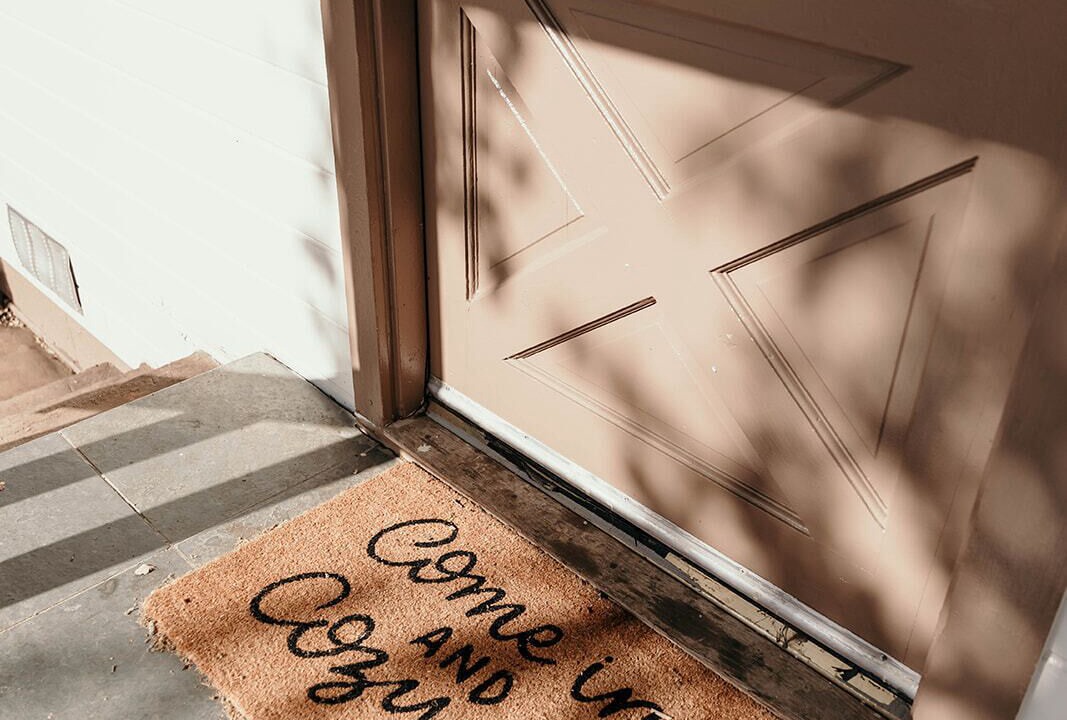 Come in
AND
Cozy